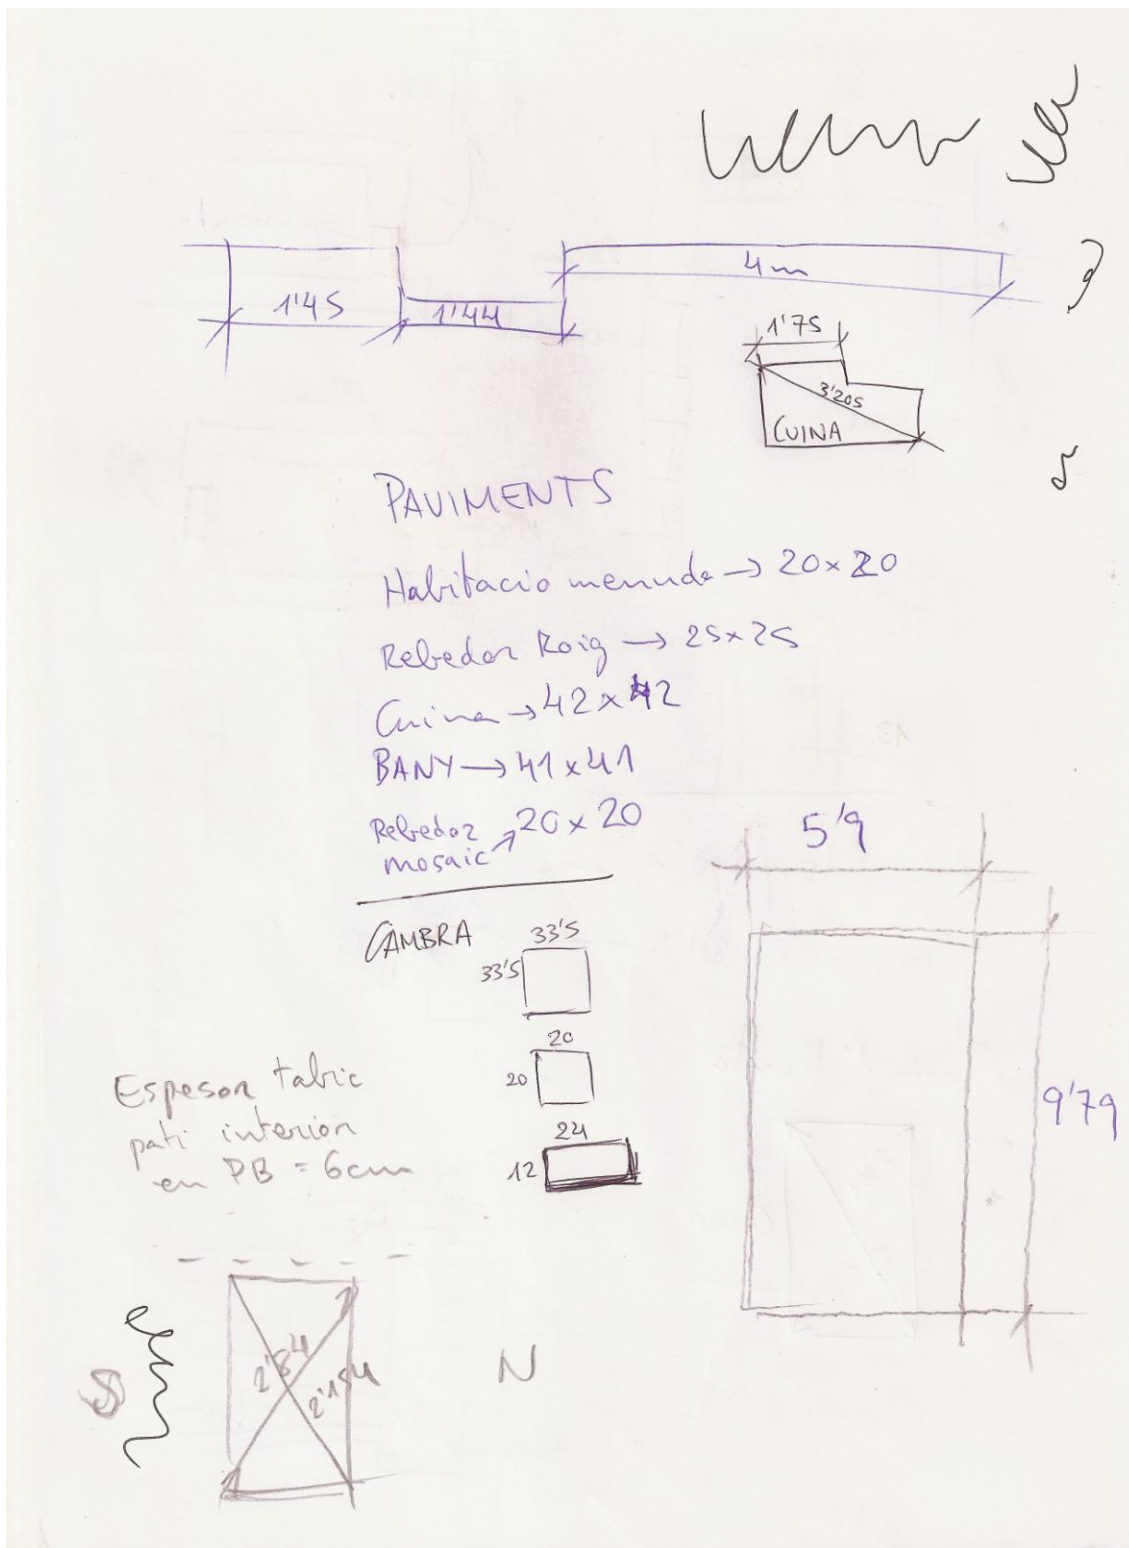 4m
1'45
1'44
1'75
3'205
CUINA
PAVIMENTS
Habitacio menuda → 20x20
Rebedor Roig → 25x25
Cuina → 42x42
BANY → 41x41
Rebedor
mosaic → 20x20
5'9
CAMBRA
33'5
33'5
20
20
24
12
9'79
Espesor tabic
pati interior
en PB = 6cm
N
S